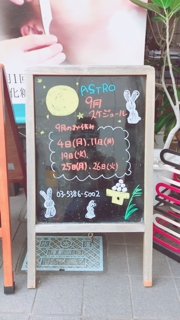 ASTRO
9月
スケジュール
4日(月)、11日(月)
19日(火)
25日(月)、26日(火)
03-5386-5002